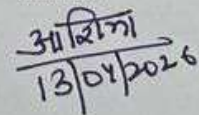 आशिमा
13/04/2026